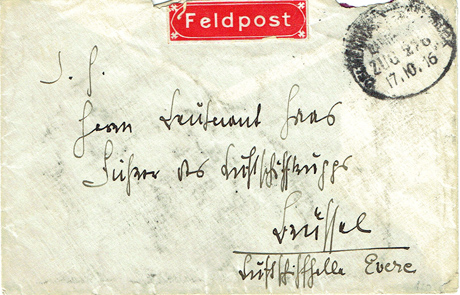 Feldpost
ZUG 276
17.10.16
S. H.
Herrn Leutnant Haas
Führer des Luftschifftrupps
Brüssel
Luftschiffhalle Evere